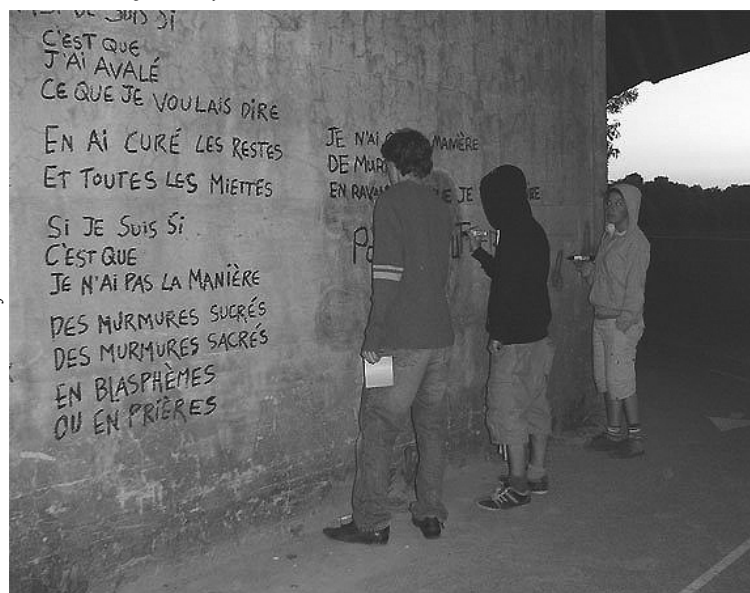 SUIS SI
C'EST QUE
J'AI AVALÉ
CE QUE JE VOULAIS DIRE
EN AI CURÉ LES RESTES
ET TOUTES LES MIETTES
SI JE SUIS SI
C'EST QUE
JE N'AI PAS LA MANIÈRE
DES MURMURES SUCRÉS
DES MURMURES SACRÉS
EN BLASPHÈMES
OU EN PRIÈRES
JE N'AI MANIÈRE
DE
EN JE